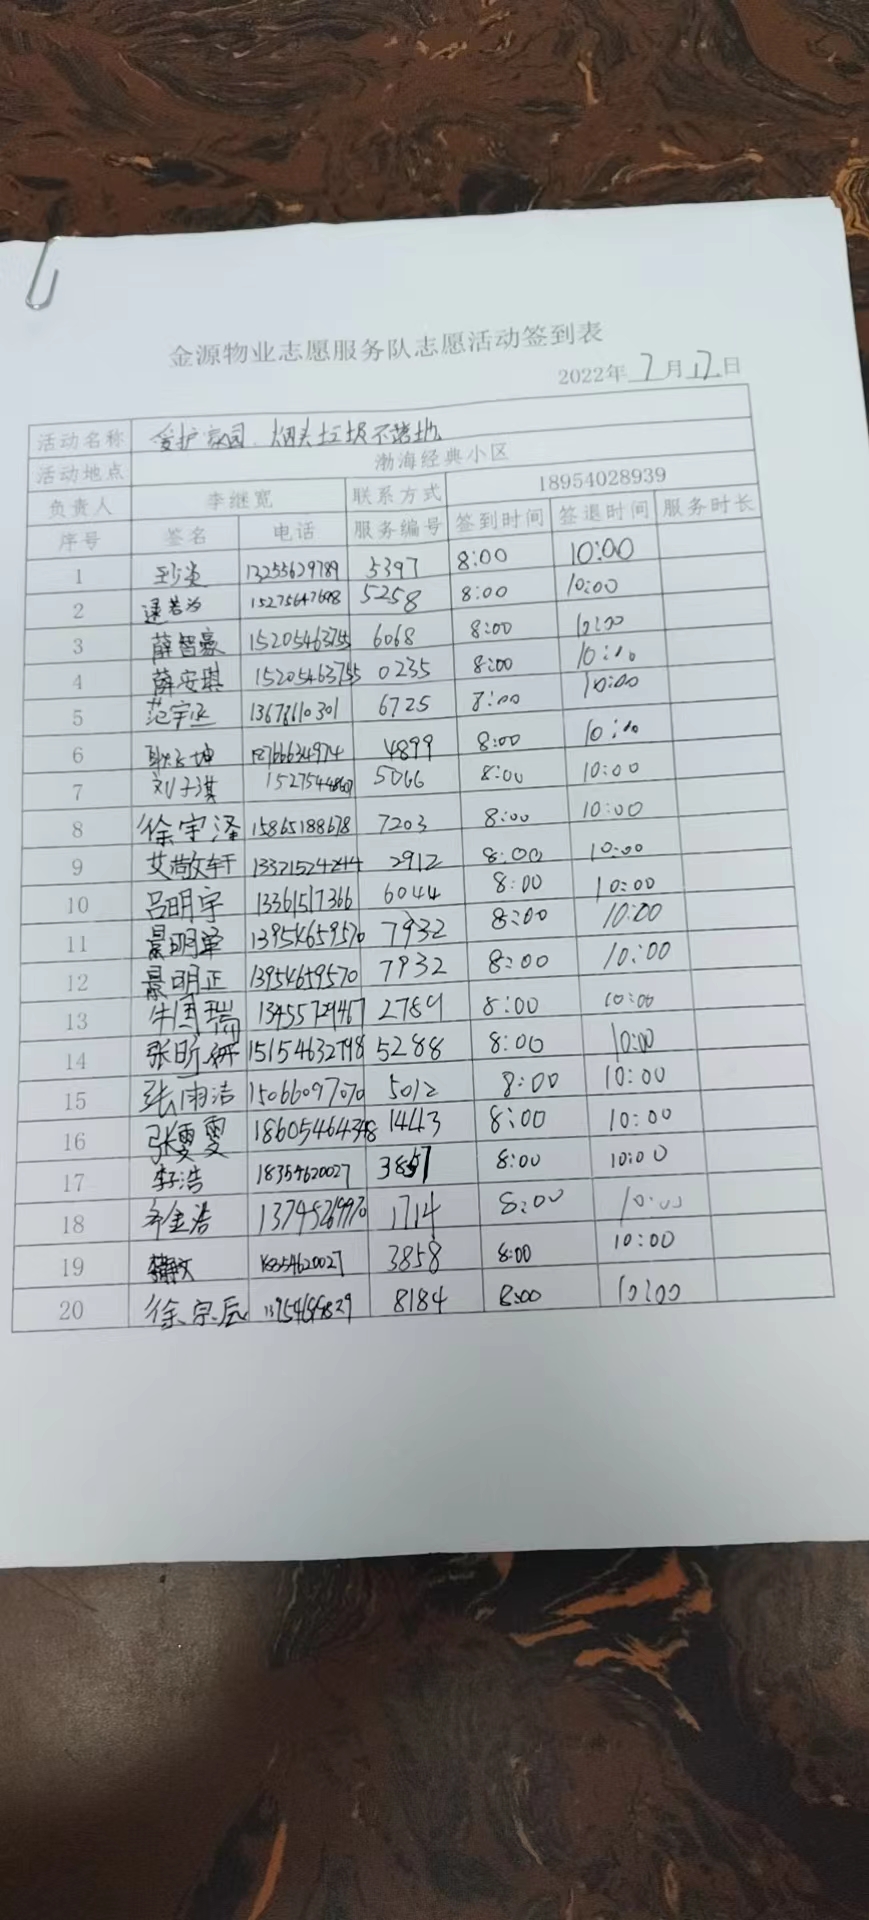 金源物业志愿服务队志愿活动签到表
2022年 7 月 12 日
活动名称 爱护家园、烟头垃圾不落地
活动地点 渤海经典小区
负责人 李继宽 联系方式 18954028939
序号 签名 电话 服务编号 签到时间 签退时间 服务时长
1 13255629789 5397 8:00 10:00
2 5258 8:00 10:00
3 薛智豪 15205463755 6068 8:00 10:00
4 薛安琪 15205463755 0235 8:00 10:00
5 6725 8:00 10:00
6 4899 8:00 10:00
7 刘子淇 5066 8:00 10:00
8 徐宇泽 15865188678 7203 8:00 10:00
9 艾敬轩 13321524244 2912 8:00 10:00
10 吕明宇 13361517366 6044 8:00 10:00
11 景明泽 13954659570 7932 8:00 10:00
12 景明正 13954659570 7932 8:00 10:00
13 2789 8:00 10:00
14 张昕妍 15154632798 5288 8:00 10:00
15 张雨洁 15066097070 5012 8:00 10:00
16 张雯雯 1443 8:00 10:00
17 李浩 18354620027 3857 8:00 10:00
18 1714 8:00 10:00
19 18354620027 3858 8:00 10:00
20 徐宗辰 8184 8:00 10:00